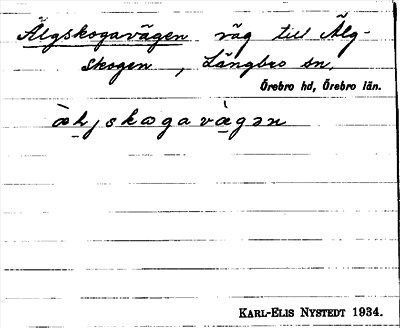 Älgskogavägen väg till Älg-
skogen, Längbro sn.
Örebro hd, Örebro län.
KARL-ELIS NYSTEDT 1934.